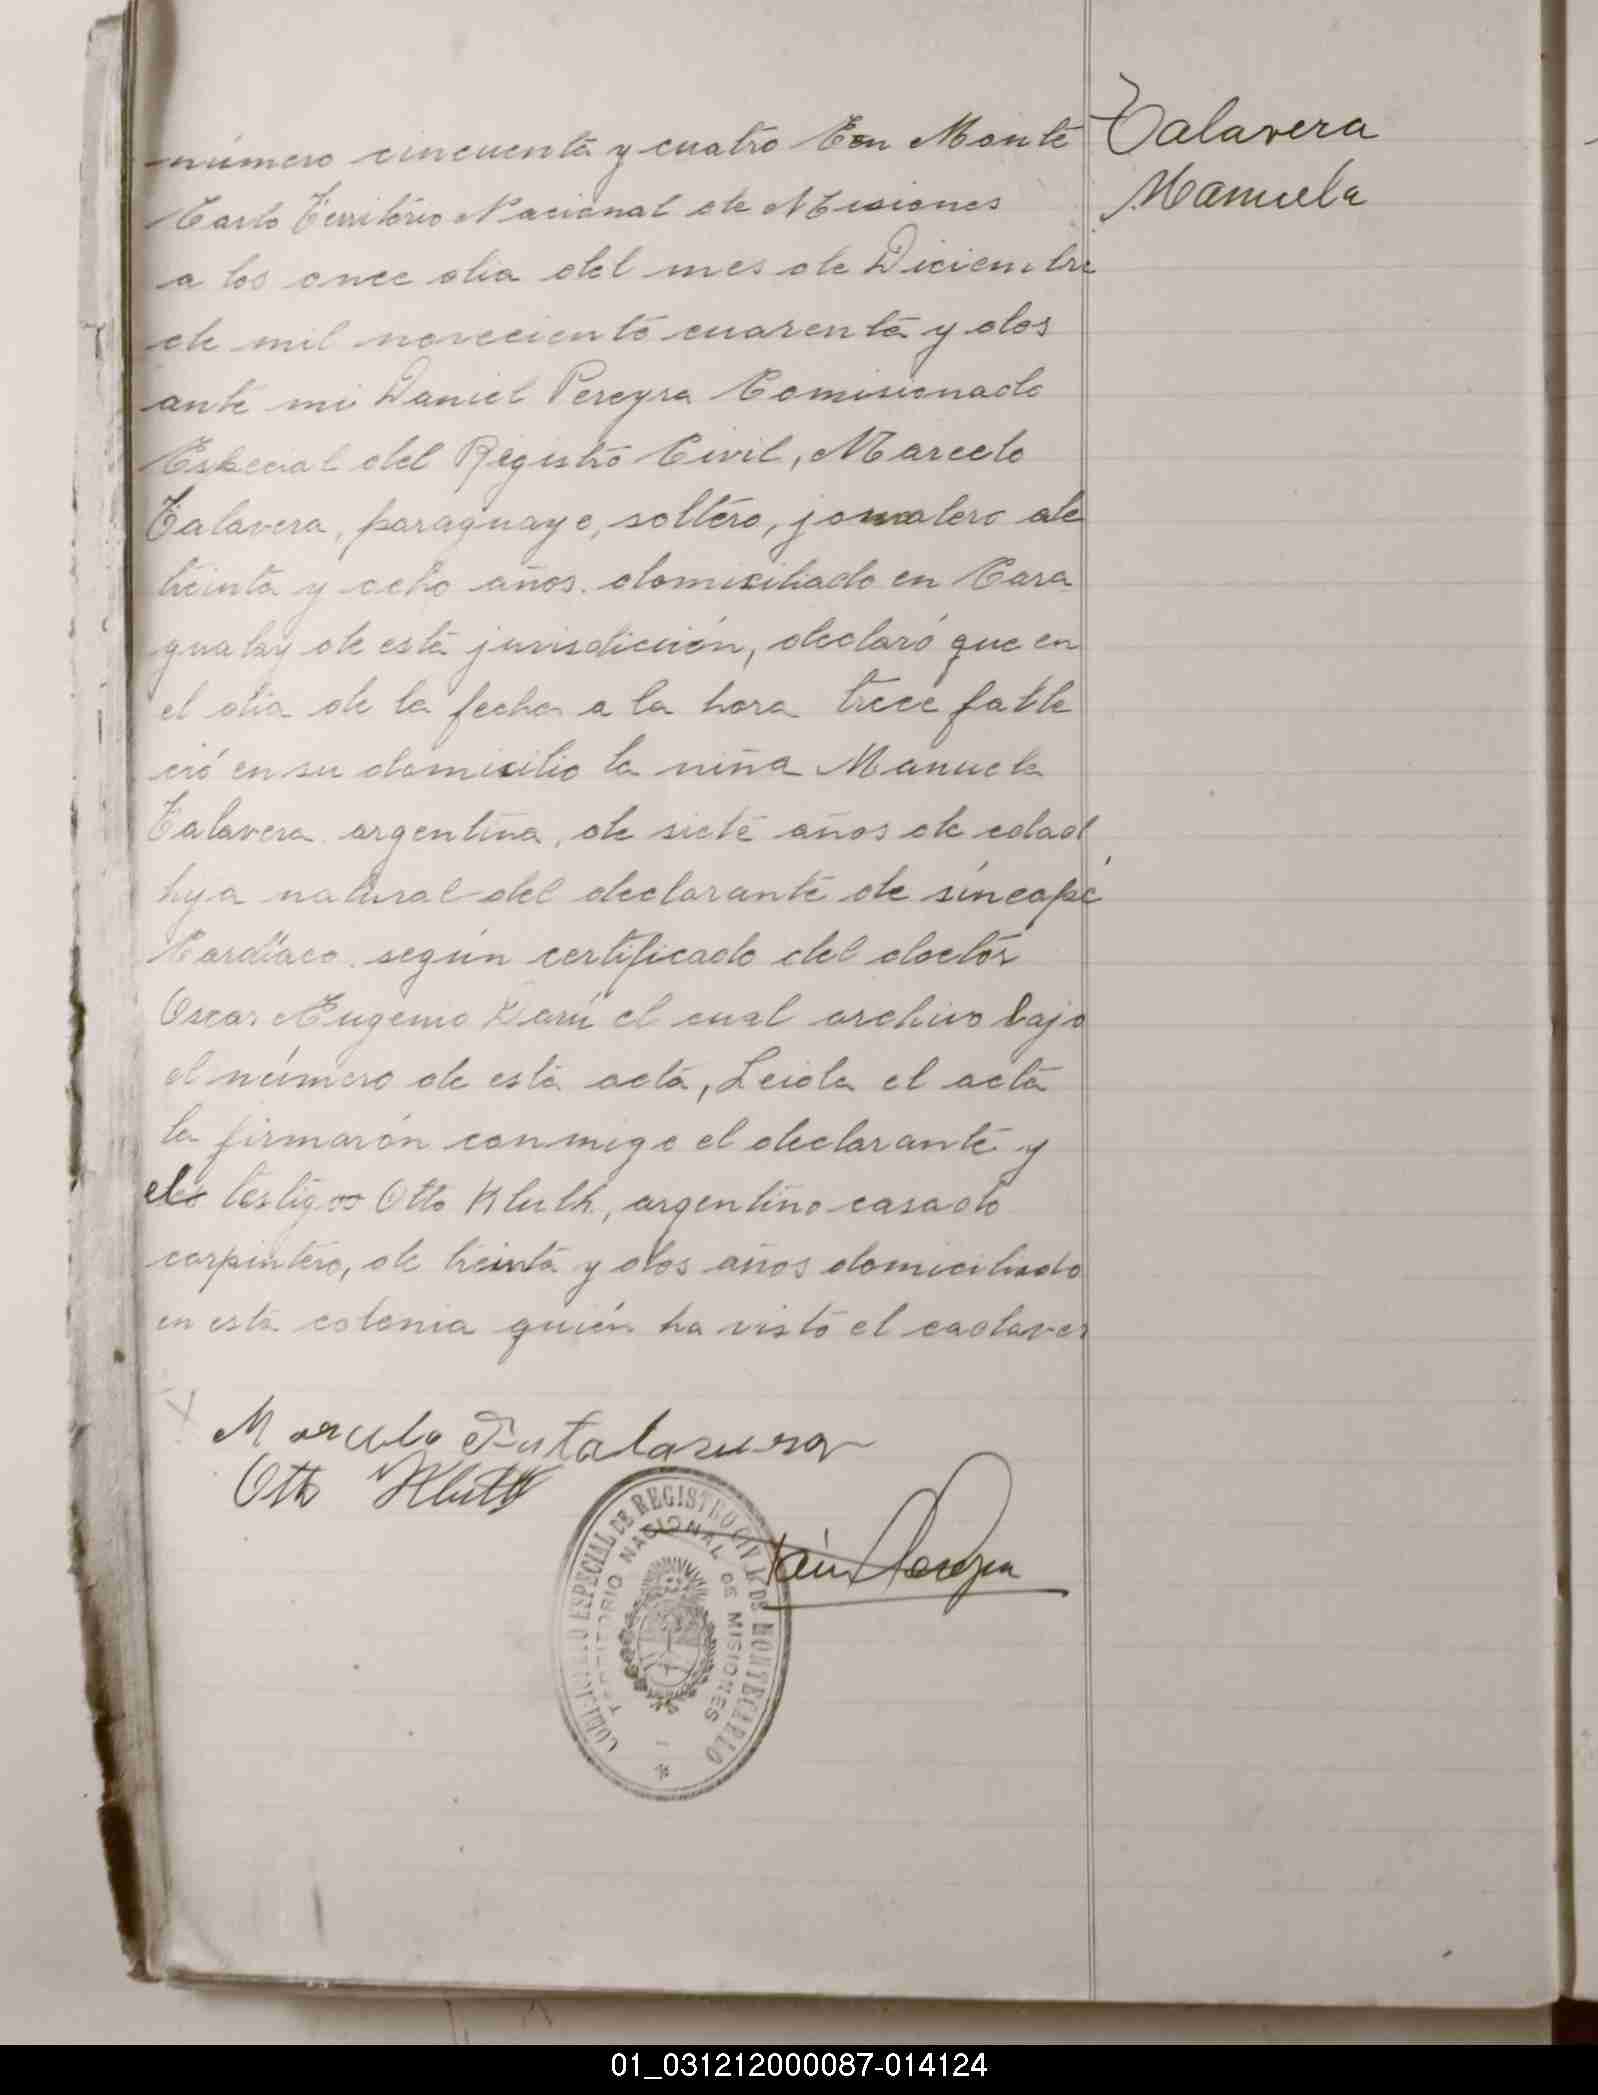 número cincuenta y cuatro En Monte
Carlo Territorio Nacional de Misiones
a los once dia del mes de Diciembre
de mil noveciento cuarenta y dos
ante mi Daniel Pereyra Comisionado
Especial del Registro Civil, Marcelo
Talavera, paraguayo, soltero, jornalero de
treinta y ocho años. domiciliado en Cara
guatay de esta jurisdicción, declaró que en
el dia de la fecha a la hora trece falle
ció en su domicilio la niña Manuela
Talavera argentina, de siete años de edad
hija natural del declarante de síncopé
Cardíaco. según certificado del doctor
Oscar Eugenio Darú el cual archivo bajo
el número de esta acta, Leida el acta
la firmarón conmigo el declarante y
el testigo Otto Kluth, argentino casado
carpintero, de treinta y dos años domiciliado
en esta colonia quién ha visto el cadaver
Talavera
Manuela
Marcelo
Otto Kluth
COMISIONADO ESPECIAL DE REGISTRO CIVIL DE MONTECARLO
TERRITORIO NACIONAL DE MISIONES
01_031212000087-014124